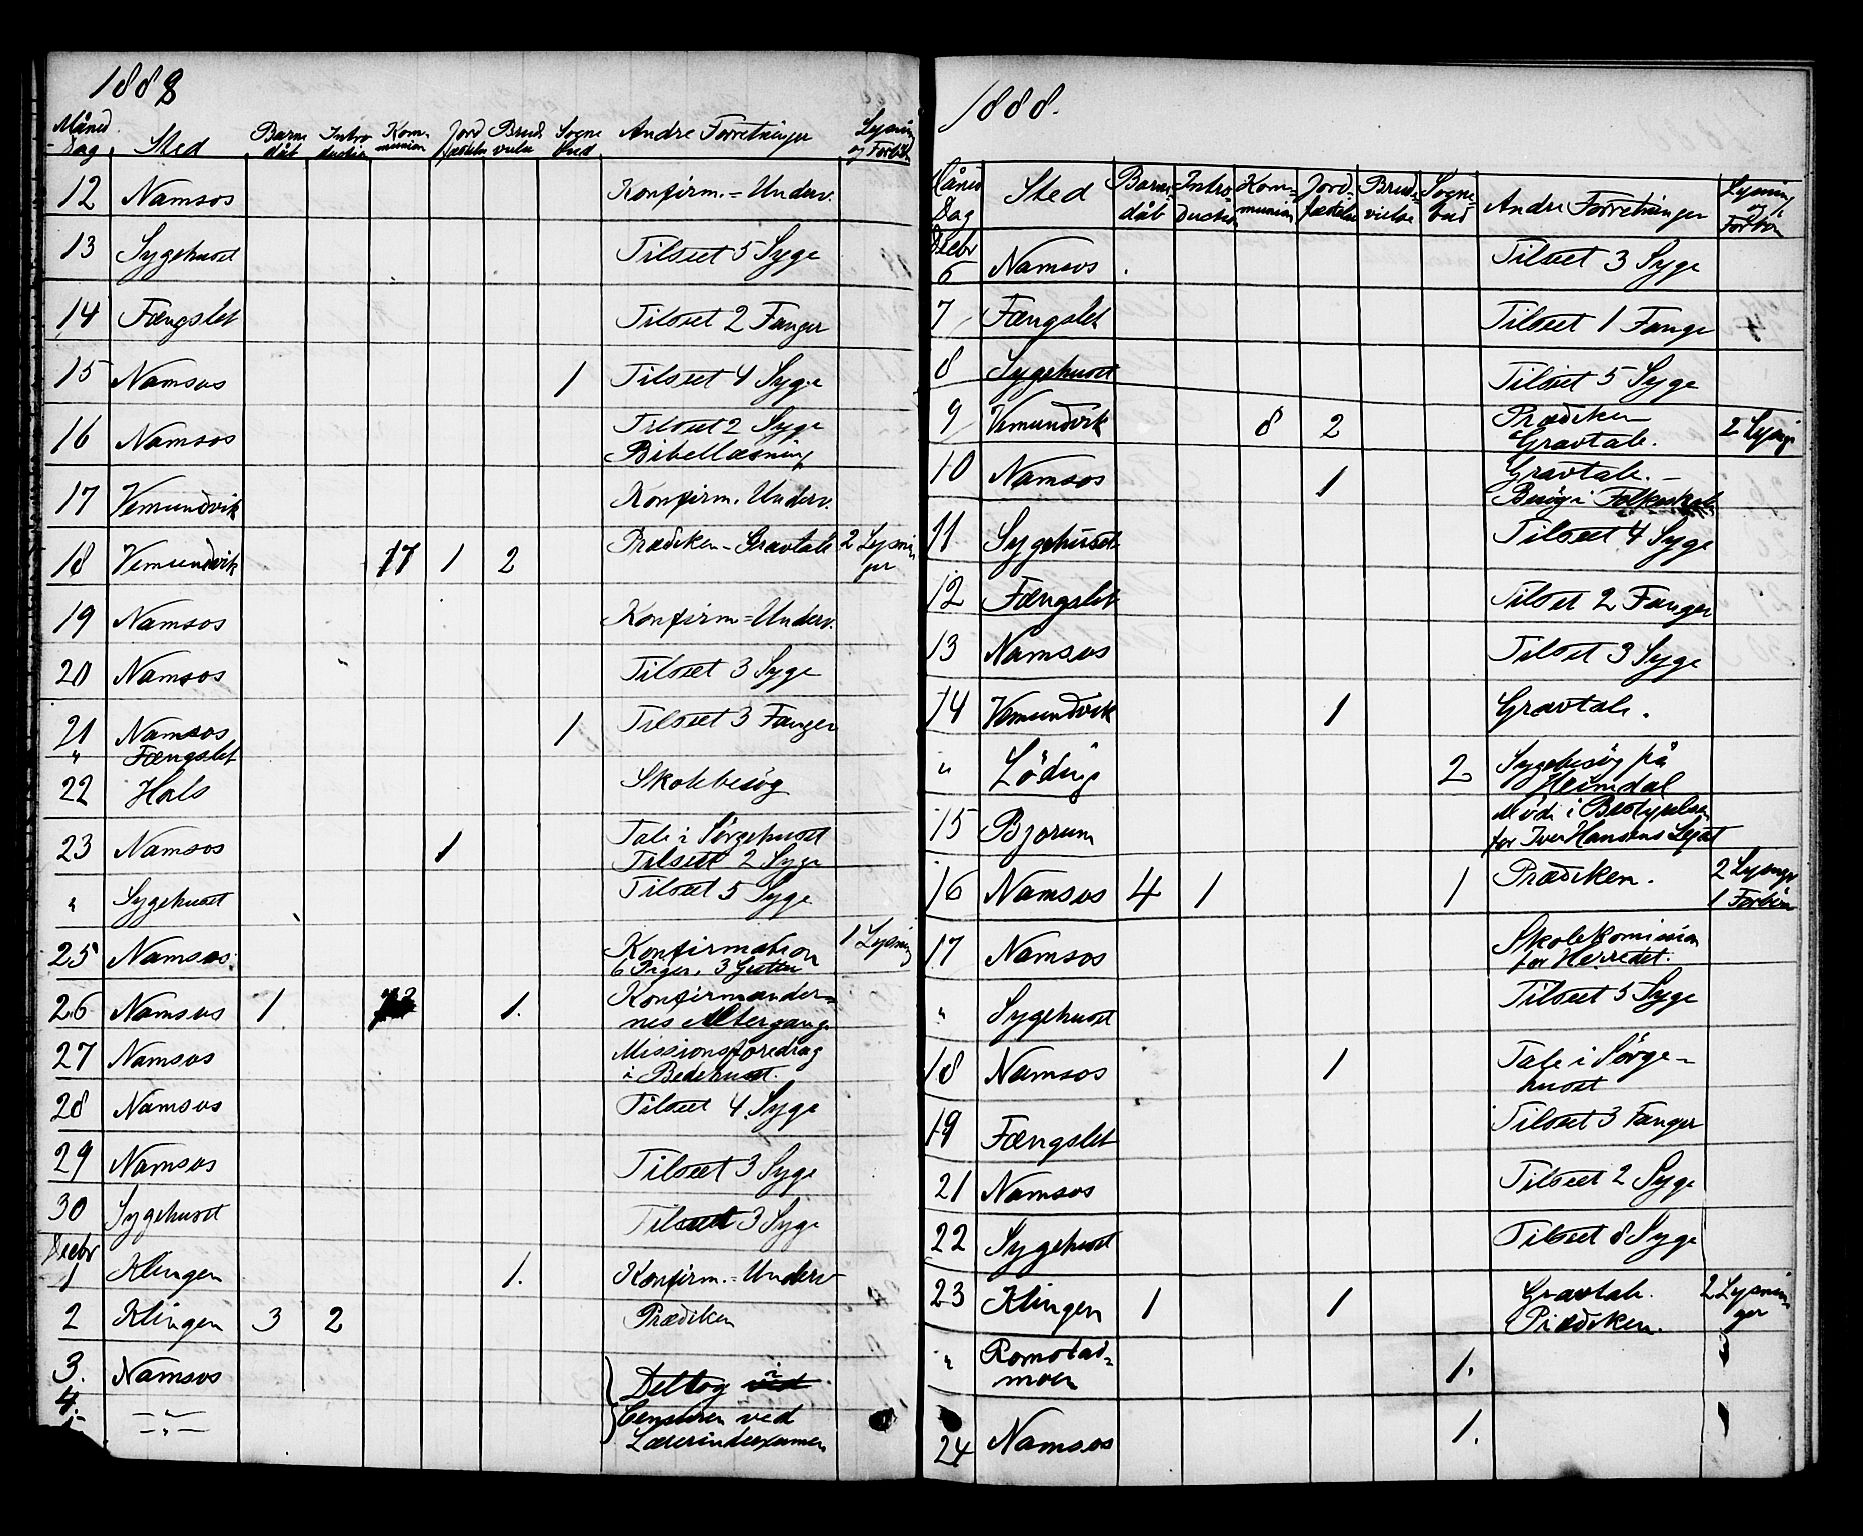 1888
Måned Dag Sted Barne dåb Intro duction Kom- munion Jord fæstelse Brude vielse Sogne bud Andre Forretninger Lysning og Forbön
12 Namsos Konfirm.=Underv.
13 Sygehuset Tilseet 5 Syge
14 Fængslet Tilseet 2 Fanger
15 Namsos 1 Tilseet 4 Syge
16 Namsos Tilseet 2 Syge
Bibellæsning
17 Vemundvik Konfirm. Underv.
18 Vemundvik 17 1 2 Prædiken - Gravtale 2 Lysnin
ger
19 Namsos Konfirm=Underv.
20 Namsos Tilseet 3 Syge
21 Namsos 1 Tilseet 3 Fanger
" Fængslet
22 Hals Skolebesög
23 Namsos 1 Tale i Sörgehuset
Tilseet 2 Syge
" Sygehuset Tilseet 5 Syge
25 Namsos Konfirmation 1 Lysning
6 Piger, 3 Gutter
26 Namsos 1. 1. Konfirmander=
nes Altergang
27 Namsos Missionsforedrag
i Bedehuset.
28 Namsos Tilseet 4 Syge
29 Namsos Tilseet 3 Syge
30 Sygehuset Tilseet 3 Syge
Decbr
1 Klingen 1. Konfirm.=Underv
2 Klingen 3 2 Prædiken
3. Namsos Deltog ved i
4. -"- Censuren ved
Lærerindexamen
1888.
Måned Dag Sted Barne dåb Intro duction Kom= munion Jord- fæstelse Brude vielse Sogne bud Andre Forretninger Lysning og Forbön
Decbr
6 Namsos Tilseet 3 Syge
7 Fængslet Tilseet 1 Fange
8 Sygehuset Tilseet 5 Syge
9 Vemundvik 8 2 Prædiken 2 Lysnin
Gravtale.
10 Namsos 1 Gravtale. -
Besög i Folkeskole
11 Sygehuset Tilseet 4 Syge
12 Fængslet Tilseet 2 Fanger
13 Namsos Tilseet 3 Syge
14 Vemundvik 1 Gravtale.
" Löding 2 Sygebesög på
Heimdal
15 Bjørum Möde i Bestyrelsen
for Iver Hansens Legat
16 Namsos 4 1 1 Prædiken. 2 Lysnge
1 Forbön
17 Namsos Skolekomission
for Herredet.
" Sygehuset Tilseet 5 Syge
18 Namsos 1 Tale i Sörge=
huset
19 Fængslet Tilseet 3 Fanger
21 Namsos Tilseet 2 Syge
22 Sygehuset Tilseet 8 Syge
23 Klingen 1 1 Gravtale. 2 Lysnin
Prædiken. ger
" Romstad=
moen 1.
24 Namsos 1.